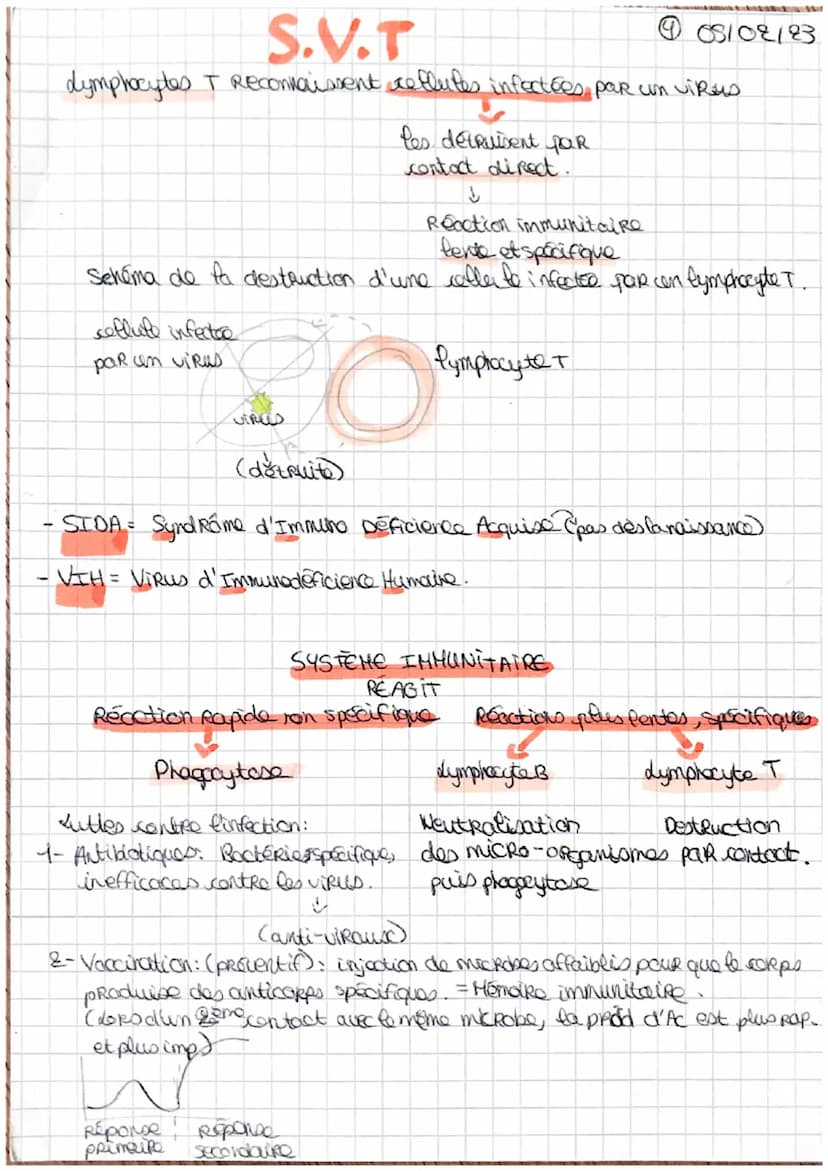 S.V.T
④ 05/02/23
Lymphocytes T reconnaissent cellules infectées par un virus
les détruisent par
contact direct.
↓
Réaction immunitaire
lente et spécifique
Schéma de la destruction d'une cellule infectée par un lymphocyte T.
cellule infectée
par un virus
lymphocyte T
virus
(détruite)
- SIDA = Syndrôme d'Immuno Déficience Acquise (pas dès la naissance)
- VIH = Virus d'Immunodéficience Humaine.
SYSTÈME IMMUNITAIRE
RÉAGIT
Réaction rapide non spécifique
Réactions plus lentes, spécifiques
Phagocytose
Lymphocyte B
Lymphocyte T
Neutralisation
des micro-organismes
puis phagocytose
Destruction
par contact.
Luttes contre l'infection:
1- Antibiotiques: Bactéries spécifique,
inefficaces contre les virus.
↓
(anti-viraux)
2- Vaccination: (préventif): injection de microbes affaiblis pour que le corps
produise des anticorps spécifiques. = Mémoire immunitaire.
(Lors d'un 2ème contact avec le même microbe, la prod d'Ac est plus rap.
et plus imp)
Réponse
primaire
Réponse
secondaire